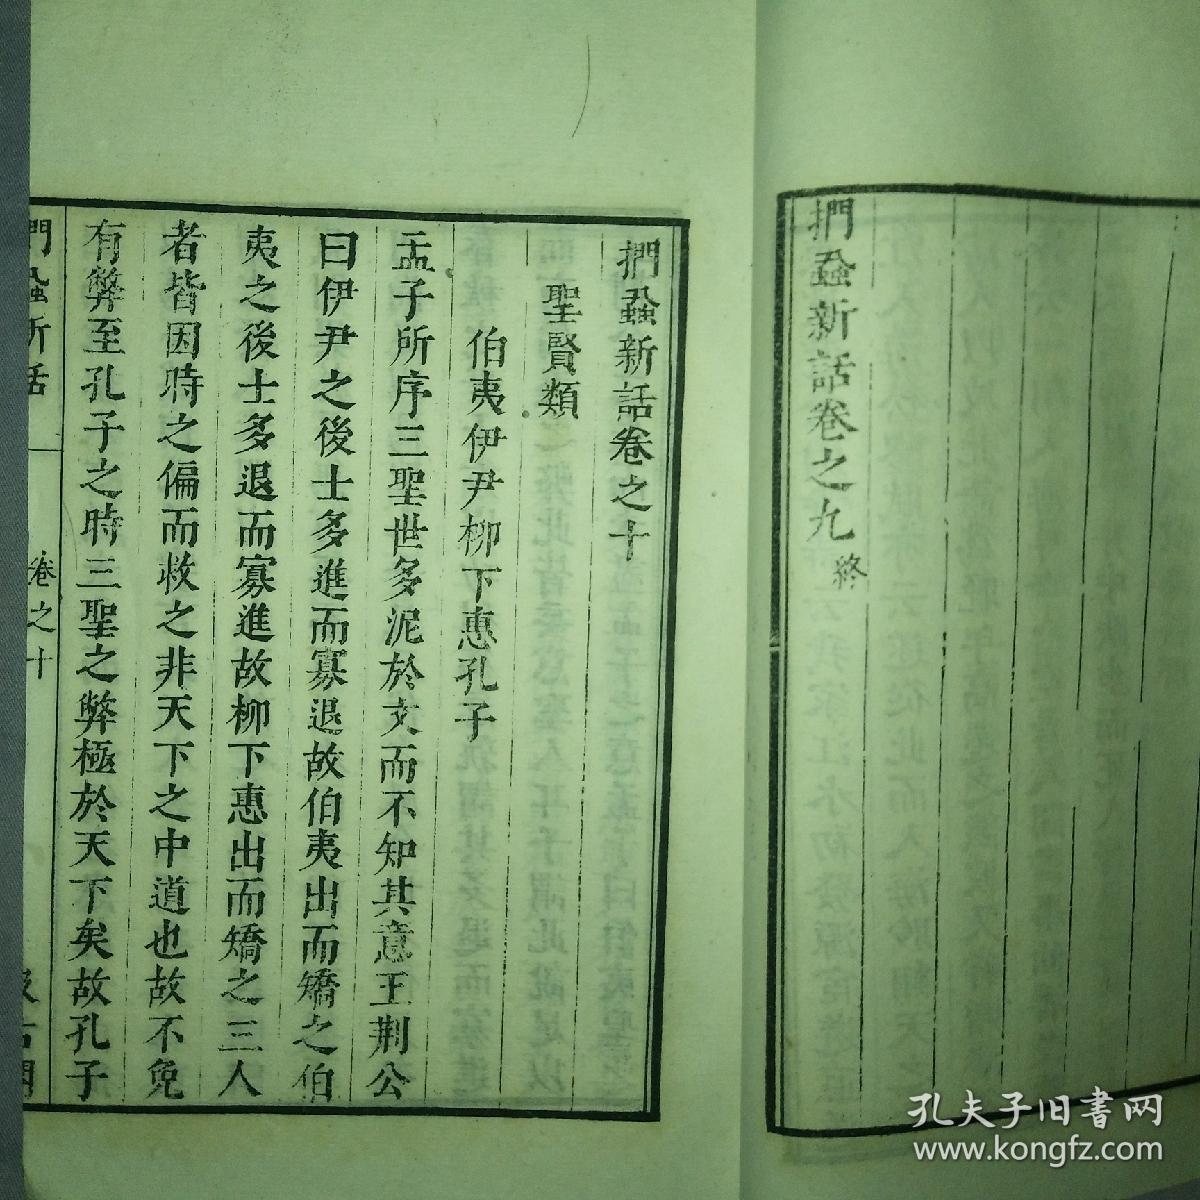 捫蝨新話卷之九終
捫蝨新話卷之十
聖賢類
伯夷伊尹柳下惠孔子
孟子所序三聖世多泥於文而不知其意王荆公
曰伊尹之後士多進而寡退故伯夷出而矯之伯
夷之後士多退而寡進故柳下惠出而矯之三人
者皆因時之偏而救之非天下之中道也故不免
有弊至孔子之時三聖之弊極於天下矣故孔子
捫蝨新話
卷之十
汲古閣
孔夫子旧书网
www.kongfz.com